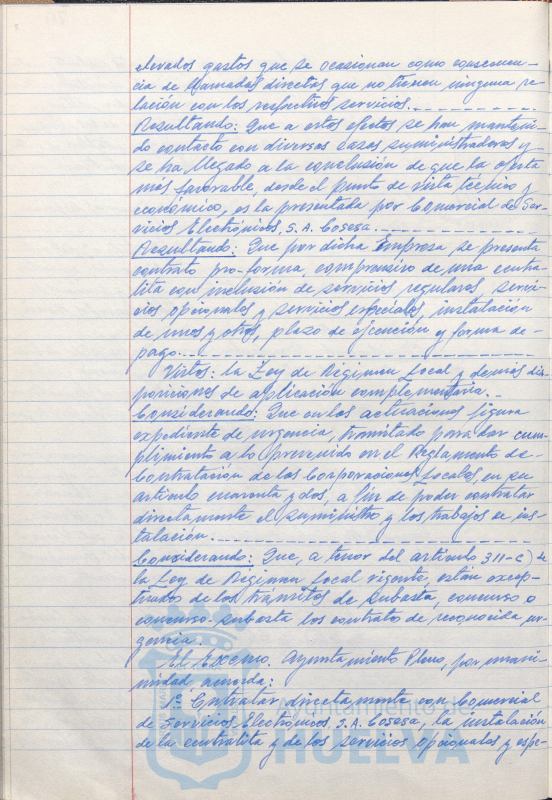 elevados gastos que se ocasionan como consecuen-
cia de llamadas directas que no tienen ninguna re-
lación con los respectivos servicios.
Resultando: Que a estos efectos se han manteni-
do contacto con diversas casas suministradoras y
se ha llegado a la conclusión de que la oferta
más favorable, desde el punto de vista técnico y
económico, es la presentada por Comercial de Ser-
vicios Electrónicos, S.A. Cosesa.
Resultando: Que por dicha Empresa se presenta
contrato pro-forma, comprensivo de una centra-
lita con inclusión de servicios regulares, servi-
cios opcionales y servicios especiales, instalación
de unos y otros, plazo de ejecución y forma de-
pago.
Vistos: la Ley de Régimen Local y demás dis-
posiciones de aplicación complementaria.
Considerando: Que en las actuaciones figura
expediente de urgencia, tramitado para dar cum-
plimiento a lo prevenido en el Reglamento de-
Contratación de las Corporaciones Locales, en su
artículo cuarenta y dos, a fin de poder contratar
directamente el suministro y los trabajos de ins-
talación.
Considerando: Que, a tenor del artículo 311-c) de
la Ley de Régimen Local vigente, están excep-
tuados de los trámites de subasta, concurso o
concurso-subasta los contratos de reconocida ur-
gencia.
El Excmo. Ayuntamiento Pleno, por unani-
midad acuerda:
1º: Contratar directamente con Comercial
de Servicios Electrónicos, S.A. Cosesa, la instalación
de la centralita y de los servicios opcionales y espe-
Ayuntamiento de
HUELVA